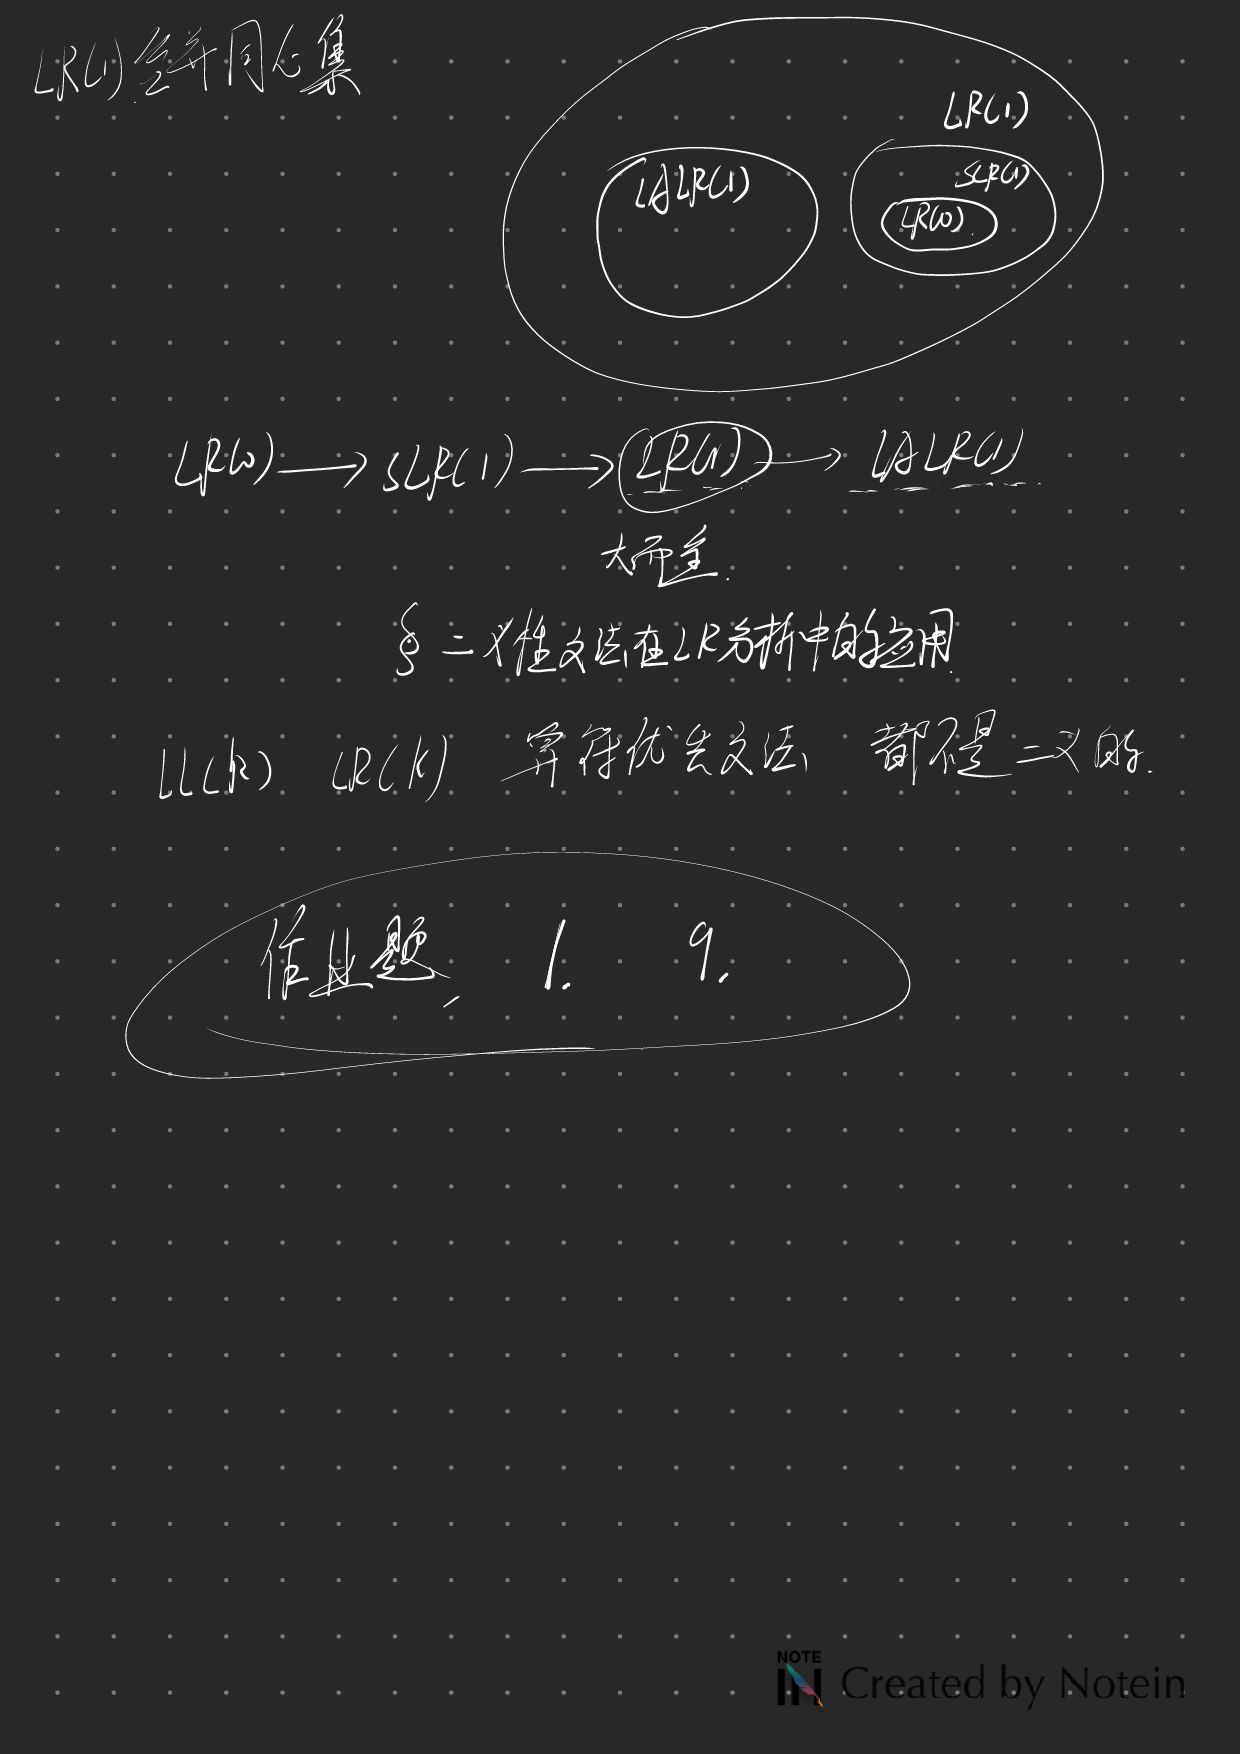 LR(1)合并同心集
LR(1)
SLR(1)
LALR(1)
LR(0)
LR(0) → SLR(1) → LR(1) → LALR(1)
大而全
§ 二义性文法在LR分析中的应用
LL(k) LR(k) 算符优先文法 都不是二义的.
作业题, 1. 9.
NOTE
IN Created by Notein